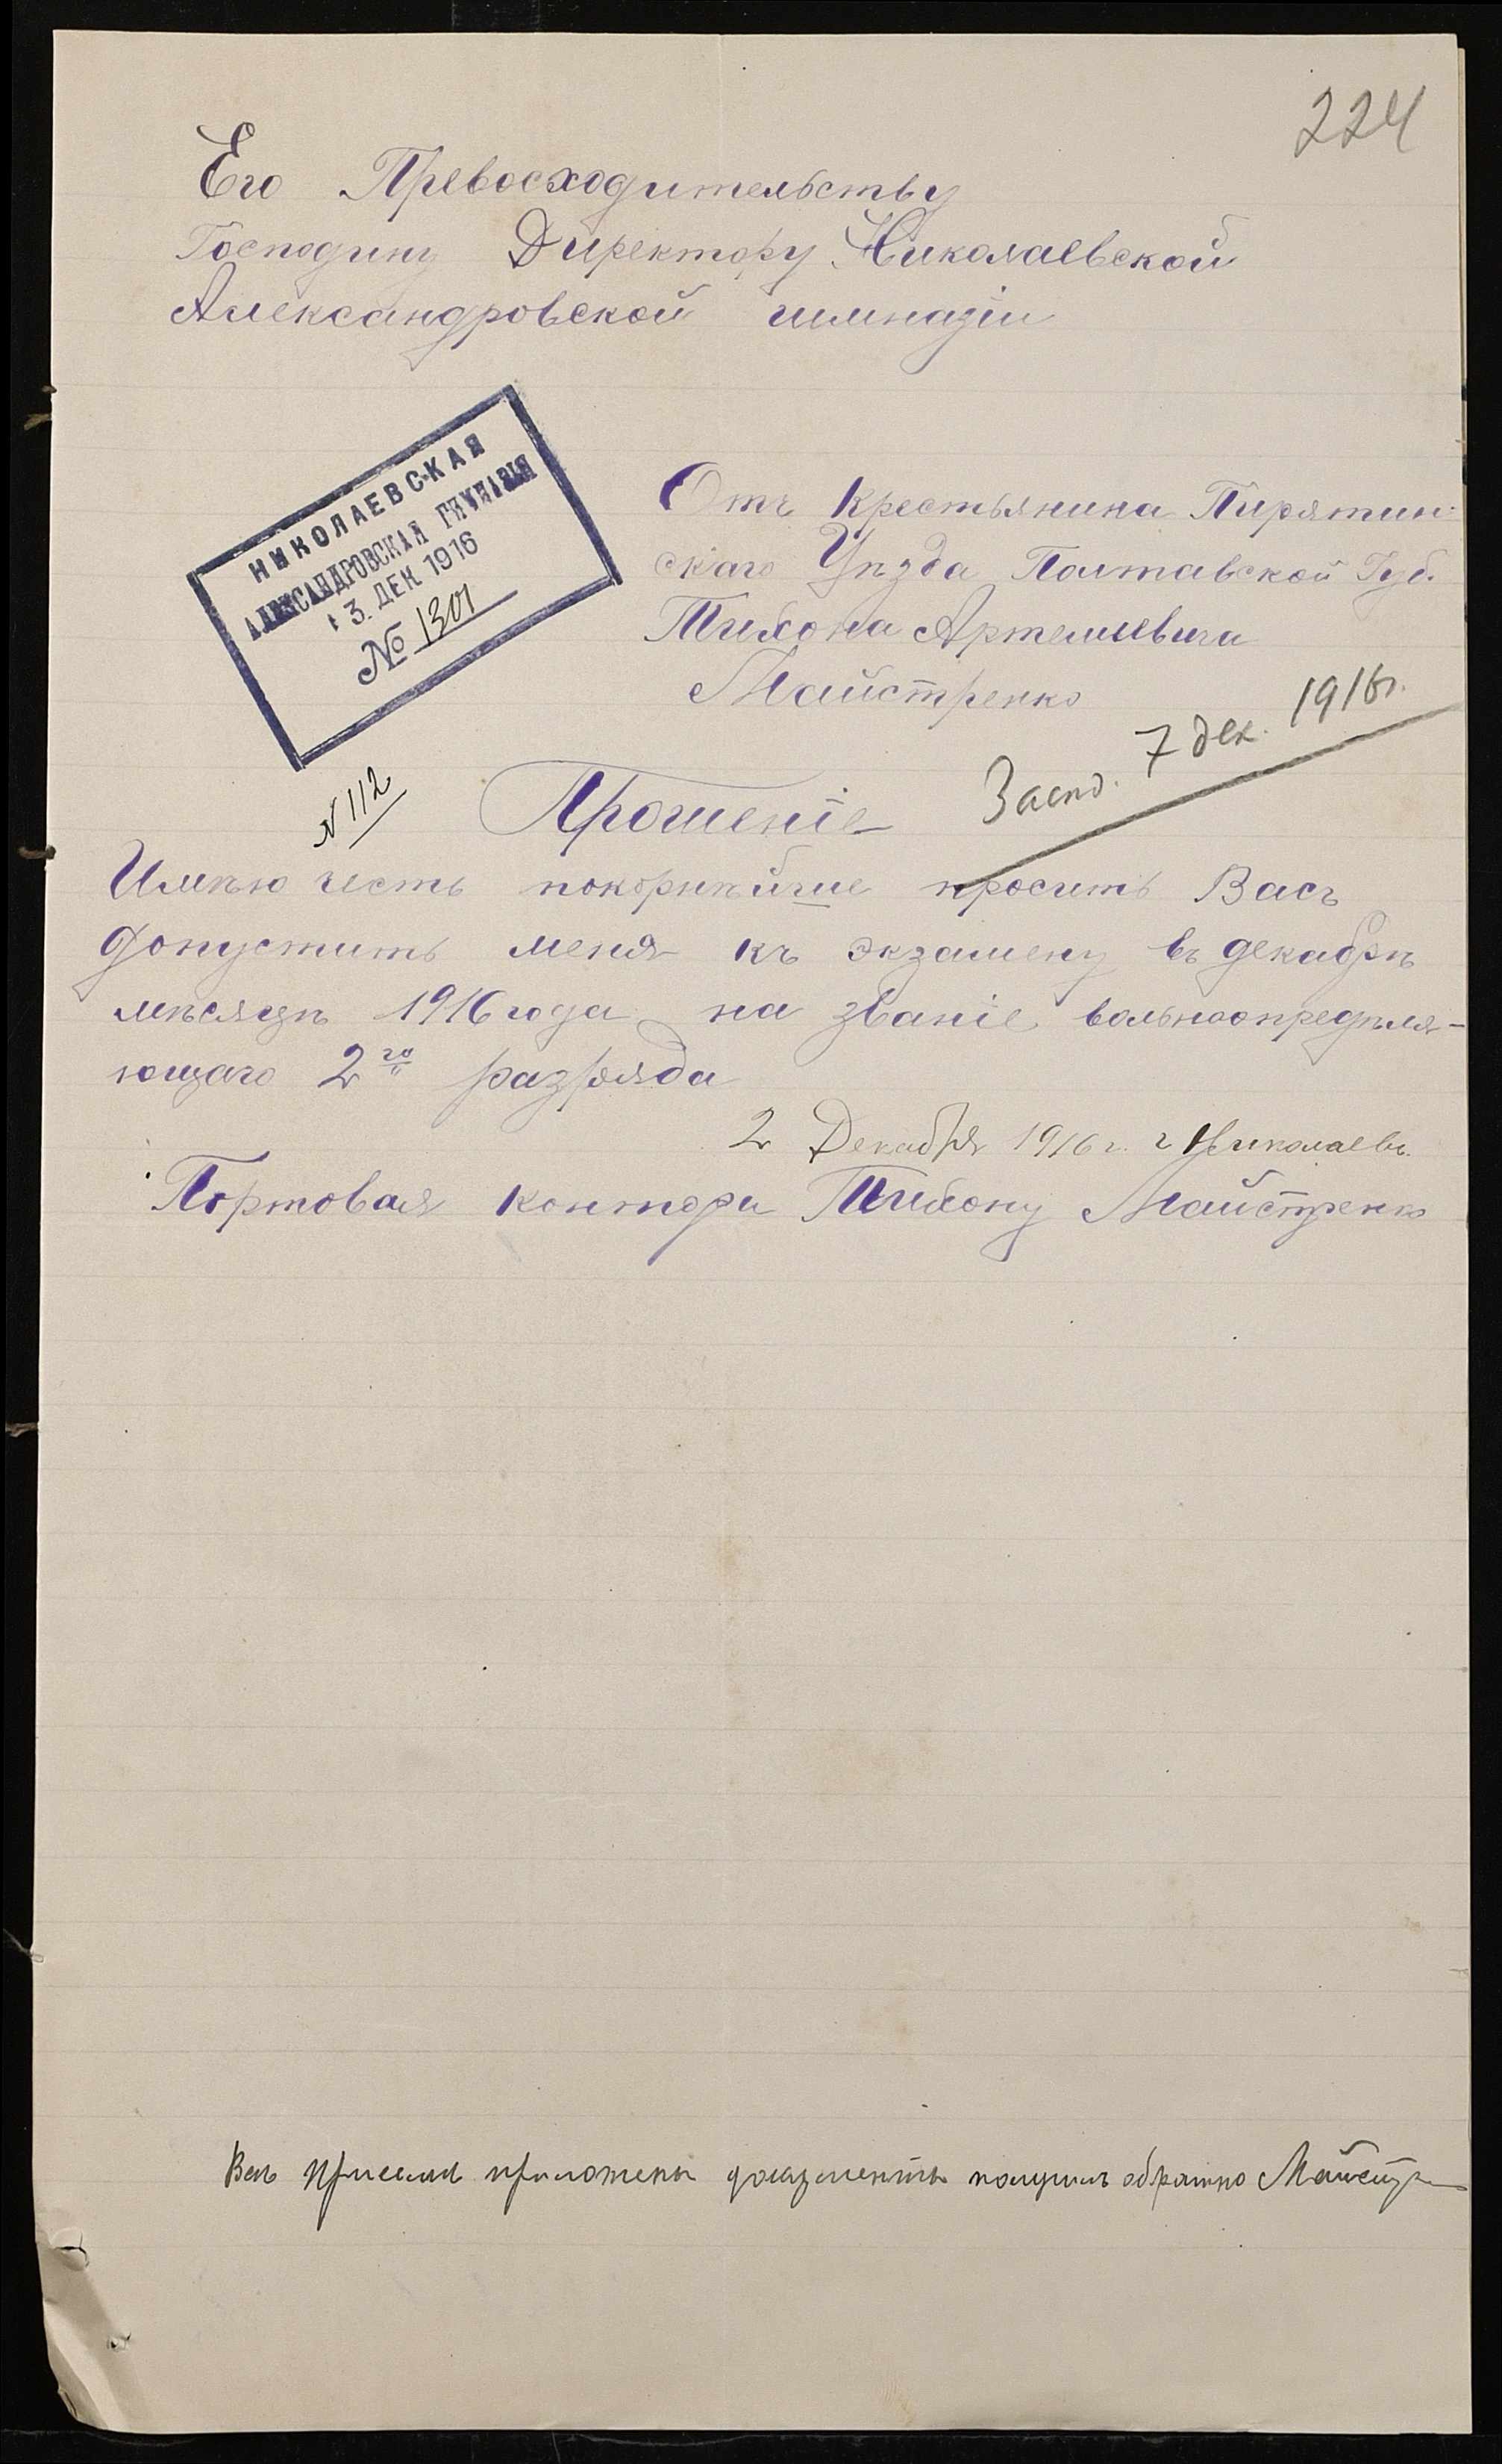 224
Его Превосходительству
Господину Директору Николаевской
Александровской гимназіи
НИКОЛАЕВСКАЯ
АЛЕКСАНДРОВСКАЯ ГИМНАЗІЯ
3. ДЕК 1916
№ 1301
Отъ Крестьянина Пирятин-
скаго Уѣзда Полтавской Губ.
Тихона Артемьевича
Майстренко
N 112
7 дек. 1916г.
Прошеніе
Имѣю честь покорнѣйше просить Васъ
допустить меня къ экзамену въ декабрѣ
мѣсяцѣ 1916 года на званіе вольноопредѣля-
ющаго 2го разряда
2 Декабря 1916 г. г Николаевъ.
Портовая контора Тихону Майстренко
документы получилъ обратно Майстр